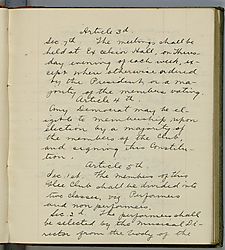 Article 3d
Sec 1st The meetings shall be
held at Excelsior Hall, on Thurs-
day evening of each week, ex-
cept when otherwise ordered
by the President or a ma-
jority of the members voting.
Article 4th
Any Democrat may be el-
igible to membership upon
election by a majority
of the members of the Club,
and signing this Constitu-
tion.
Article 5th
Sec 1st. The members of this
Glee Club shall be divided into
two classes, viz Performers
and non performers.
Sec 2d The performers shall
be selected by the musical Di-
rector from the body of the